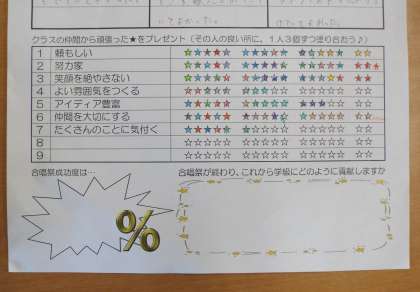 クラスの仲間から頑張った★をプレゼント(その人の良い所に、1人3個ずつ塗り合おう♪)
1 頼もしい ☆☆☆☆☆ ☆☆☆☆☆ ☆☆☆☆☆ ☆☆
2 努力家 ☆☆☆☆☆ ☆☆☆☆☆ ☆☆☆☆☆ ☆☆☆
3 笑顔を絶やさない ☆☆☆☆☆ ☆☆☆☆☆ ☆☆☆☆☆ ☆☆
4 よい雰囲気をつくる ☆☆☆☆☆ ☆☆☆☆☆ ☆☆☆☆☆ ☆☆
5 アイディア豊富 ☆☆☆☆☆ ☆☆☆☆☆ ☆☆☆☆☆ ☆☆
6 仲間を大切にする ☆☆☆☆☆ ☆☆☆☆☆ ☆☆☆☆☆ ☆☆
7 たくさんのことに気付く ☆☆☆☆☆ ☆☆☆☆☆ ☆☆☆☆☆ ☆☆
8 ☆☆☆☆☆ ☆☆☆☆☆ ☆☆☆☆☆ ☆☆
9 ☆☆☆☆☆ ☆☆☆☆☆ ☆☆☆☆☆ ☆☆
合唱祭成功度は…
%
合唱祭が終わり、これから学級にどのように貢献しますか